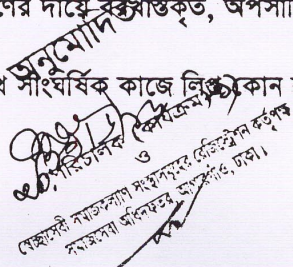 দায়ে বরখাস্তকৃত,
অনুমোদিত
সাংঘর্ষিক কাজে লিপ্ত কোন
পরিচালক (কার্যক্রম)
ও
স্বেচ্ছাসেবী সমাজকল্যাণ সংস্থাসমূহের রেজিস্ট্রেশন কর্তৃপক্ষ
সমাজসেবা অধিদফতর, আগারগাঁও, ঢাকা।